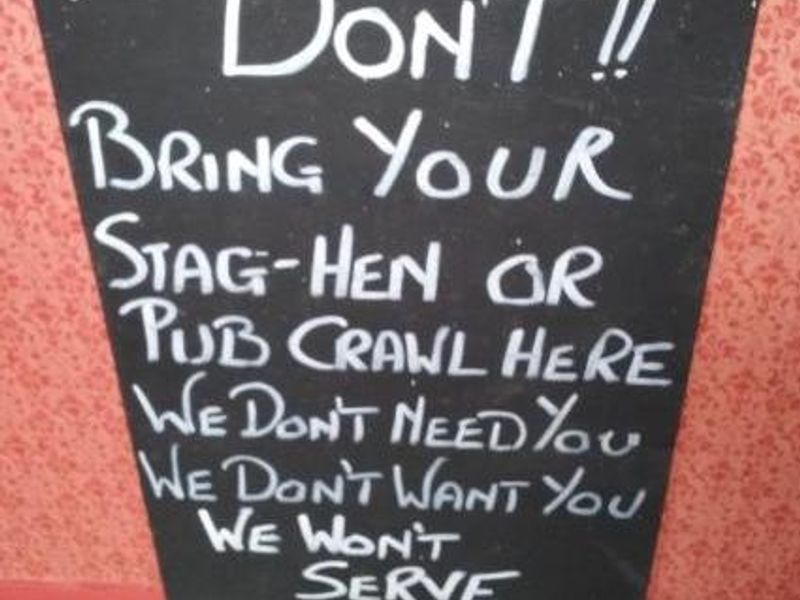 DON'T!!
BRING YOUR
STAG-HEN OR
PUB CRAWL HERE
WE DON'T NEED YOU
WE DON'T WANT YOU
WE WON'T
SERVE